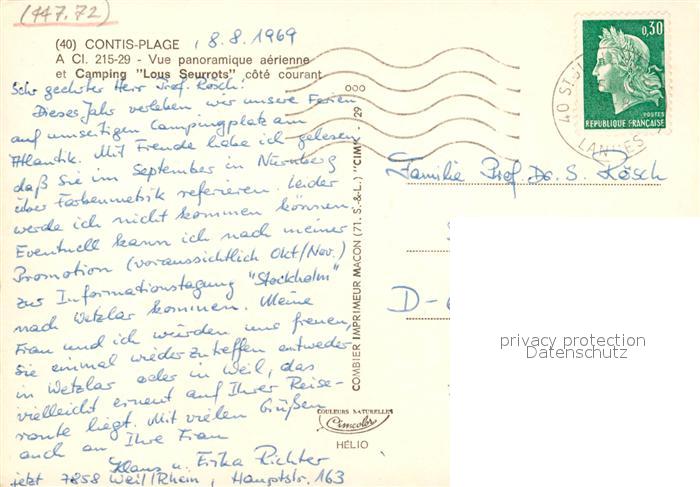 (447.72)
(40) CONTIS-PLAGE , 8.8.1969
A Cl. 215-29 - Vue panoramique aérienne
et Camping "Lous Seurrots" côté courant
Sehr geehrter Herr Prof. Rösch!
Dieses Jahr verleben wir unsere Ferien
auf umseitigen Campingplatz am
Atlantik. Mit Freude habe ich gelesen
daß Sie im September in Nürnberg
über Farbenmetrik referieren. Leider
werde ich nicht kommen können.
Eventuell kann ich nach meiner
Promotion (voraussichtlich Okt/Nov.)
zur Informationstagung "Stockholm"
nach Wetzlar kommen. Meine
Frau und ich würden uns freuen,
Sie einmal wiederzutreffen entweder
in Wetzlar oder in Weil, das
vielleicht erneut auf Ihrer Reise-
route liegt. Mit vielen Grüßen
auch an Ihre Frau
Klaus u. Erika Richter
jetzt 7858 Weil/Rhein, Hauptstr. 163
COMBIER IMPRIMEUR MACON (71. S.-&-L.) "CIM" - 29
COULEURS NATURELLES
Cimcolor
HÉLIO
0,30
POSTES
REPUBLIQUE FRANÇAISE
40 ST
LANDES
Familie Prof. Dr. S. Rösch
D-6
privacy protection
Datenschutz